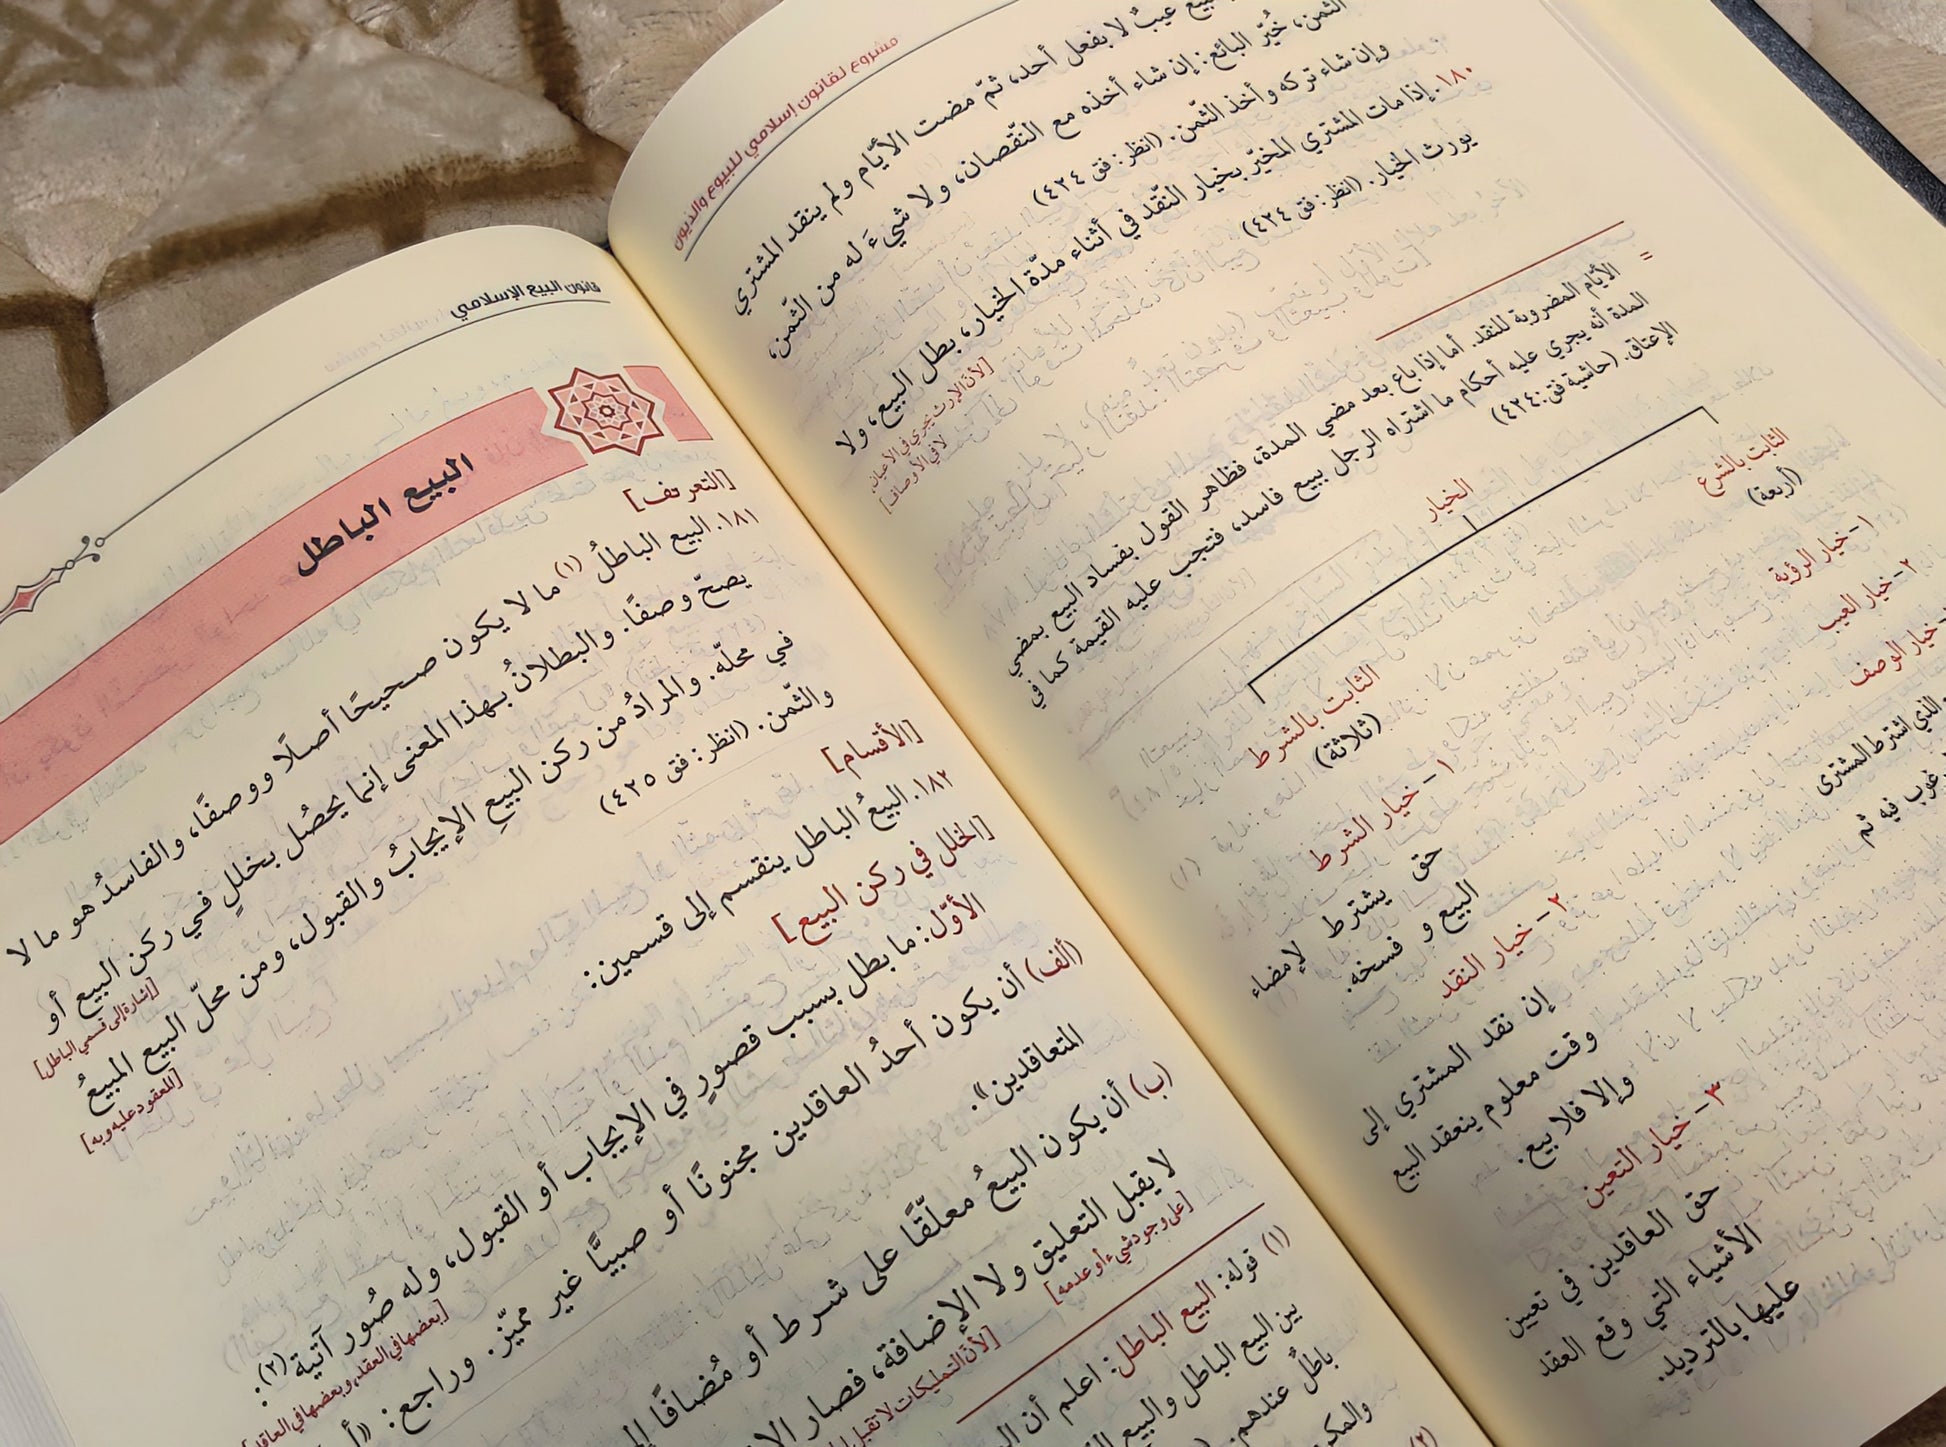 مشروع لقانون إسلامي للبيوع والديون
عيبٌ لا بفعل أحد، ثمّ مضت الأيّام ولم ينقد المشتري
الثمن، خُيّر البائع: إن شاء أخذه مع النّقصان، ولا شيءَ له من الثّمن،
وإن شاء تركه وأخذ الثّمن. (انظر: فق ٤٢٤)
١٨٠. إذا مات المشتري المخيّر بخيار النّقد في أثناء مدّة الخيار، بطل البيع، ولا
[لأنّ الإرث يجري في الأعيان،
لا في الأوصاف]
يورث الخيار. (انظر: فق ٤٢٤)
=
الأيّام المضروبة للنقد. أما إذا باع بعد مضي المدة، فظاهر القول بفساد البيع بمضي
المدة أنه يجري عليه أحكام ما اشتراه الرجل ببيع فاسد، فتجب عليه القيمة كما في
الإعتاق. (حاشية فق: ٤٢٤)
الخيار
الثابت بالشرع
(أربعة)
١- خيار الرؤية
٢- خيار العيب
خيار الوصف
الذي اشترط المشترى
غوب فيه ثم
الثابت بالشرط
(ثلاثة)
١- خيار الشرط
حق يشترط لإمضاء
البيع و فسخه.
٢- خيار النقد
إن نقد المشتري إلى
وقت معلوم ينعقد البيع
وإلا فلا بيع.
٣- خيار التعين
حق العاقدين في تعيين
الأشياء التي وقع العقد
عليها بالترديد.
قانون البيع الإسلامي
البيع الباطل
[التعريف]
١٨١. البيع الباطلُ (١) ما لا يكون صحيحًا أصلًا ووصفًا، والفاسدُ هو ما لا
يصحّ وصفًا. والبطلانُ بهذا المعنى إنما يحصُل بخللٍ في ركن البيع أو
[إشارة إلى قسمي الباطل]
في محلّه. والمرادُ من ركن البيعِ الإيجابُ والقبول، ومن محلّ البيع المبيعُ
[المعقود عليه وبه]
والثّمن. (انظر: فق ٤٢٥)
[الأقسام]
١٨٢. البيعُ الباطل ينقسم إلى قسمين:
[الخلل في ركن البيع]
الأوّل: ما بطل بسبب قصورٍ في الإيجاب أو القبول، وله صُور آتية (٢):
[بعضها في العقد، وبعضها في العاقد]
(ألف) أن يكون أحدُ العاقدين مجنونًا أو صبيًّا غير مميّز. وراجع:
المتعاقدين».
(ب) أن يكون البيعُ معلّقًا على شرط أو مُضافًا
[على وجود شيء أو عدمه]
لا يقبل التعليق ولا الإضافة، فصار
[لأنّ التمليكات لا تقبل
(١) قوله: البيع الباطل: اعلم أن
بين البيع الباطل والبيع
باطلٌ عندهم.
(٢)